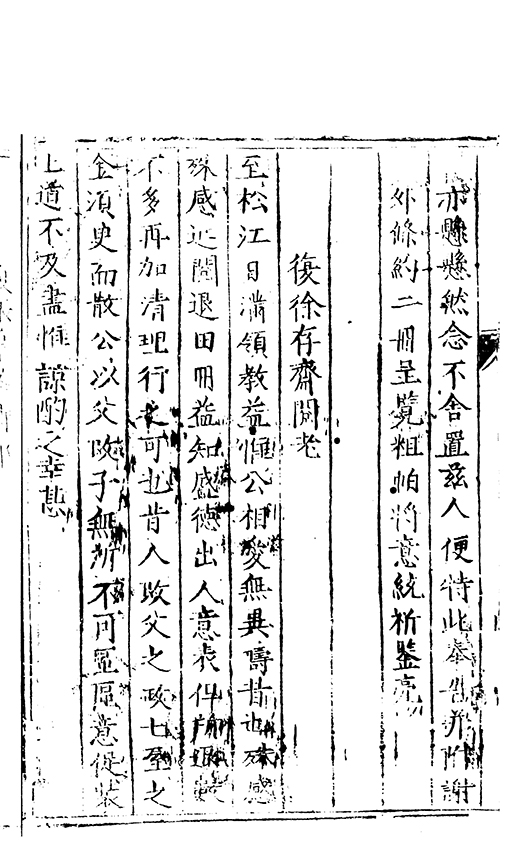 亦懸懸然念不舍置茲人便特此奉告并附謝
外條約二冊呈覽粗帕將意統祈鑒亮
復徐存齋閣老
至松江日滿領教益惟公相愛無異疇昔也殊感
殊感近閱退田冊益知盛德出人意表但所退
不多再加清理行之可也昔人改父之政七屋之
金須臾而散公以父改子無所不可區區意促裝
上道不及盡惟諒酌之幸甚